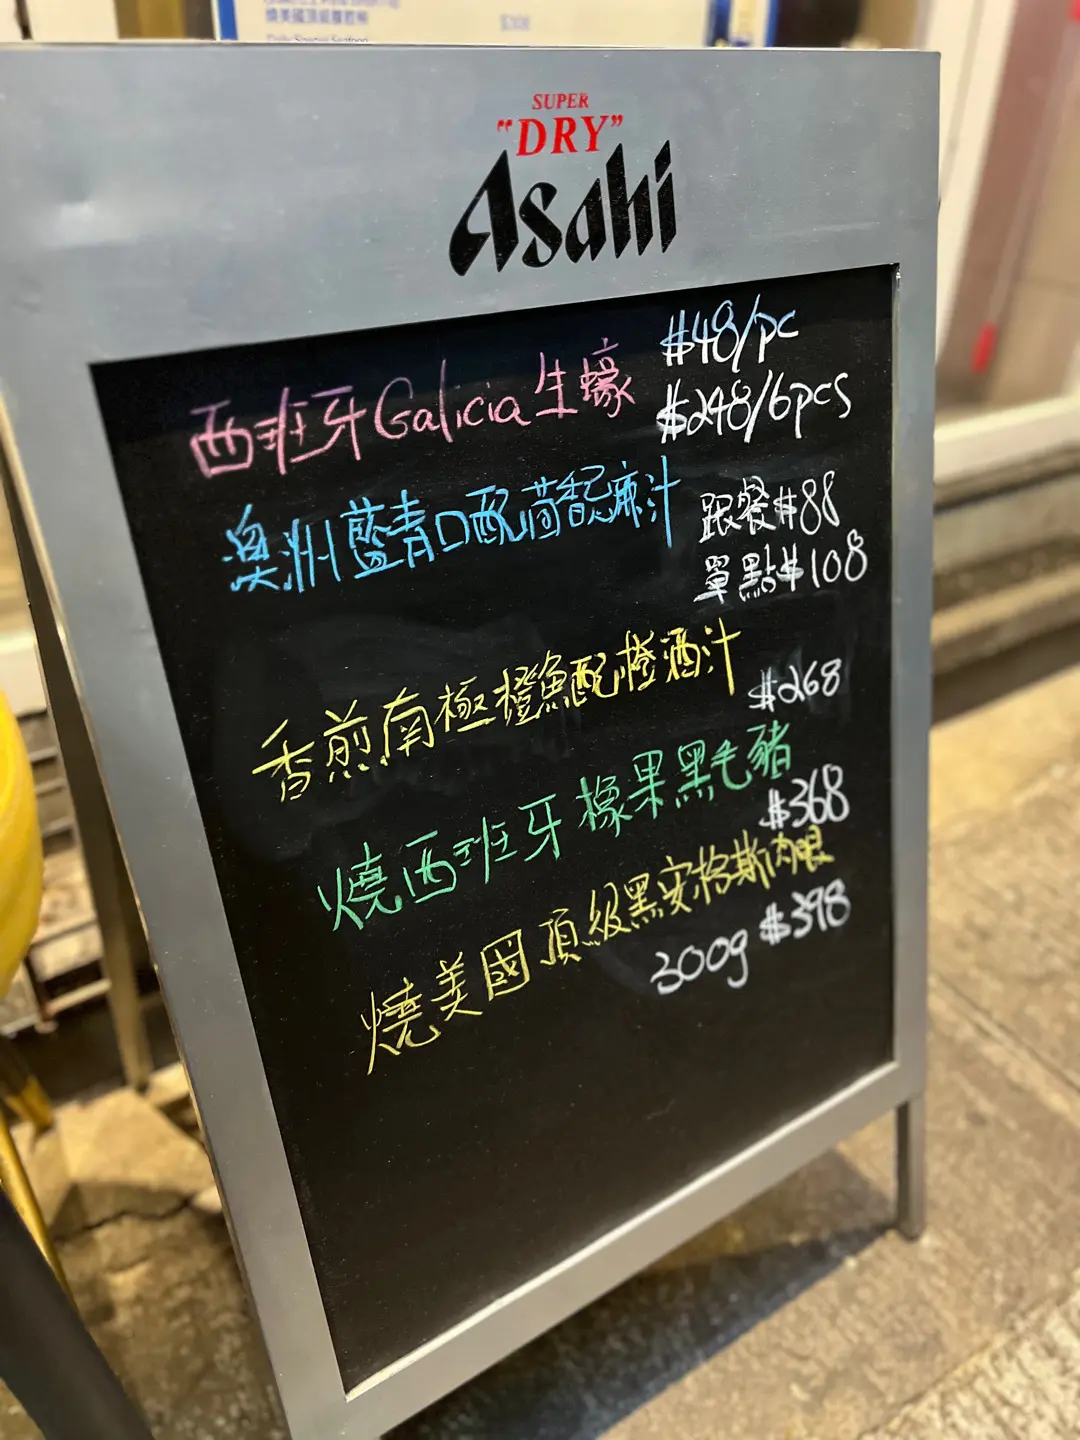 燒美國頂級
$308
Daily Special Seafood
SUPER
"DRY"
Asahi
西班牙Galicia生蠔 $48/pc
$248/6pcs
澳洲藍青口配茴香忌廉汁 跟餐$88
單點$108
香煎南極橙魚配橙酒汁
$268
燒西班牙橡果黑毛豬
$368
燒美國頂級黑安格斯肉眼
300g $398